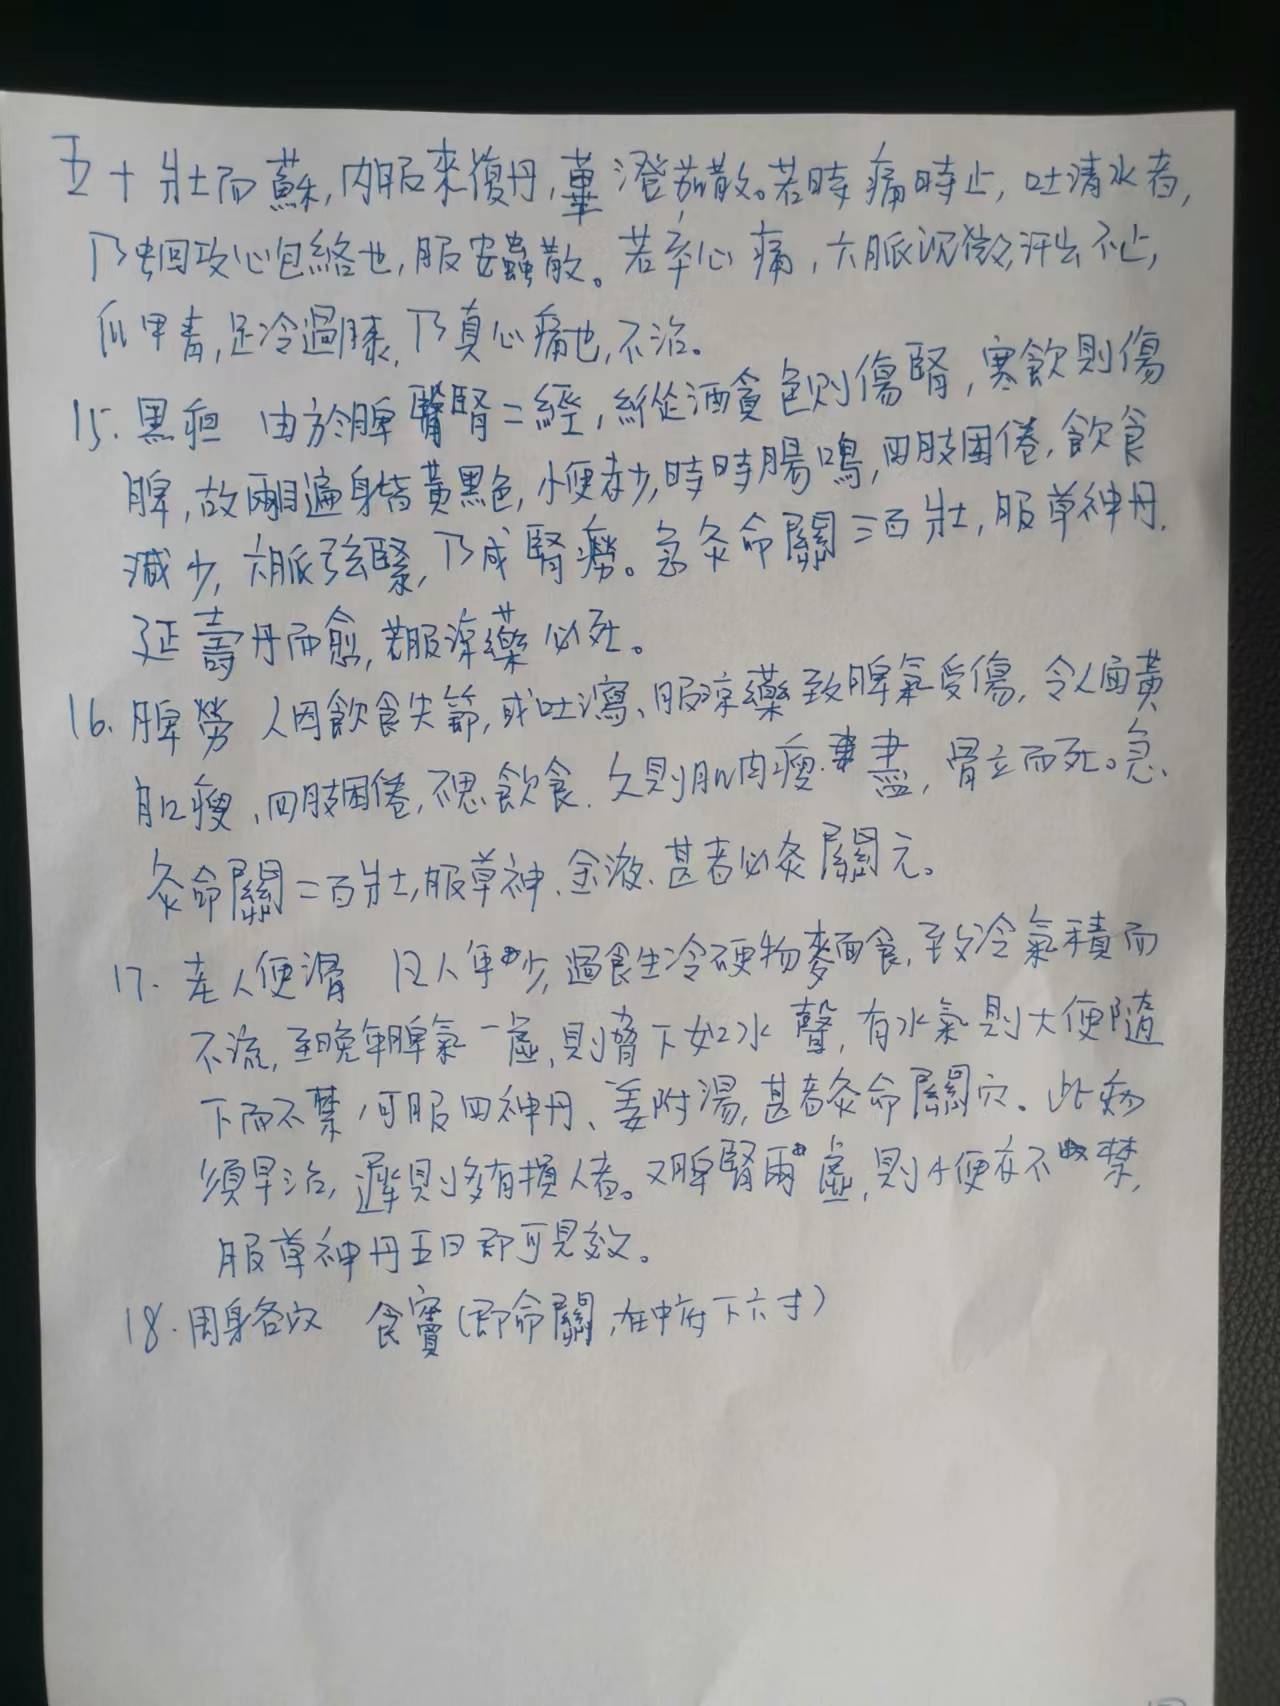 五十壯而蘇,內服來復丹,蓽澄茄散。若時痛時止,吐清水者,
乃蛔攻心包絡也,服安蟲散。若卒心痛,六脈沉微,汗出不止,
爪甲青,足冷過膝,乃真心痛也,不治。
15. 黑疸 由於脾腎二經,縱酒貪色則傷腎,寒飲則傷
脾,故兩目遍身皆黃黑色,小便赤少,時時腸鳴,四肢困倦,飲食
減少,六脈弦緊,乃成腎癆。急灸命關三百壯,服草神丹、
延壽丹而愈,若服涼藥必死。
16. 脾勞 人因飲食失節,或吐瀉、服涼藥致脾氣受傷,令人面黃
肌瘦、四肢困倦,不思飲食、久則肌肉瘦盡,骨立而死。急
灸命關二百壯,服草神、金液、甚者必灸關元。
17. 老人便滑 凡人年少,過食生冷硬物麥面食,致冷氣積而
不流,至晚年脾氣一虛,則脅下如水聲,有水氣則大便隨
下而不禁,可服四神丹、姜附湯,甚者灸命關穴。此病
須早治,遲則多有損人者。又脾腎兩虛,則小便亦不禁,
服草神丹五日即可見效。
18. 周身各穴 食竇(即命關,在中府下六寸)